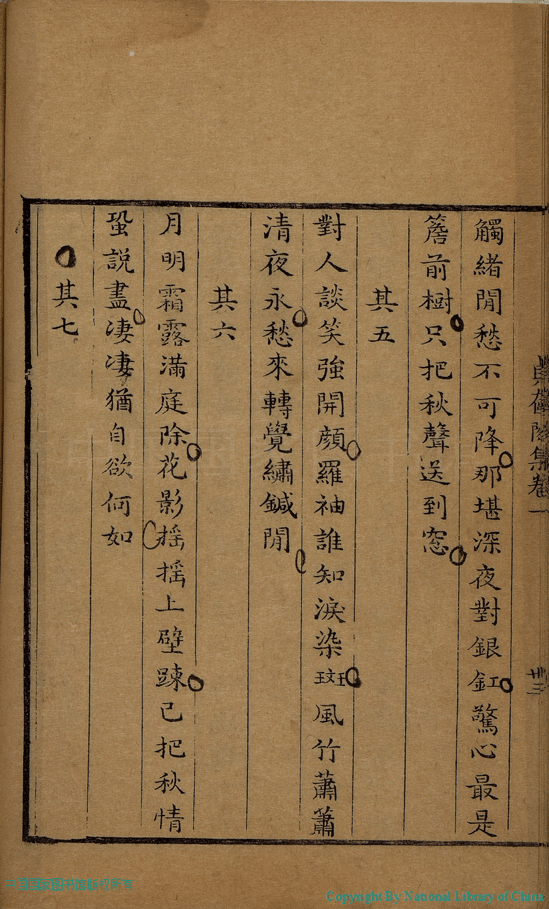 觸緒閒愁不可降那堪深夜對銀釭驚心最是
簷前樹只把秋聲送到窓
其五
對人談笑強開顏羅袖誰知淚染斑風竹蕭簫
清夜永愁來轉覺繡鍼閒
其六
月明霜露滿庭除花影搖搖上壁踈已把秋情
蛩說盡凄凄猶自欲何如
其七
集卷一
廿三
Copyright By National Library of China